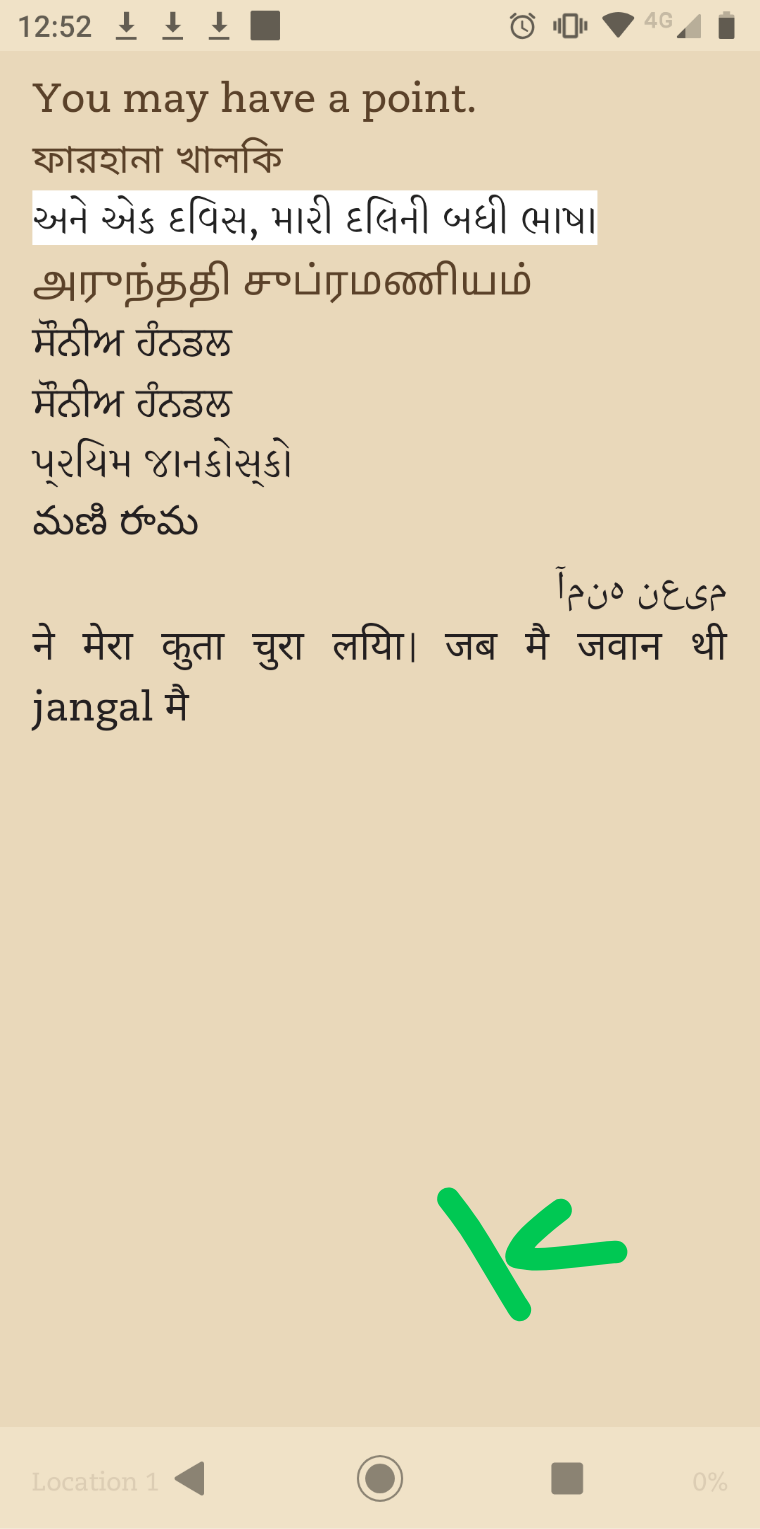 12:52 4G
You may have a point.
ফারহানা খালকি
અને એક દવિસ, મારી દલિની બધી ભાષા
அருந்ததி சுப்ரமணியம்
ਸੌਨੀਅ ਹੰਨਡਲ
ਸੌਨੀਅ ਹੰਨਡਲ
પ્રયિમ જાનકોસ્કો
మణి రామ
آمنہ نعیم
ने मेरा कुता चुरा लयिा। जब मै जवान थी
jangal मै
K
Location 1 0%